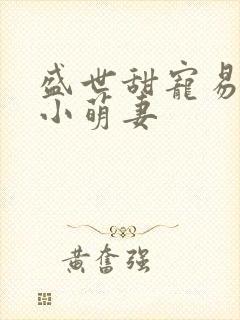 盛世甜宠易
小萌妻
黄奋强